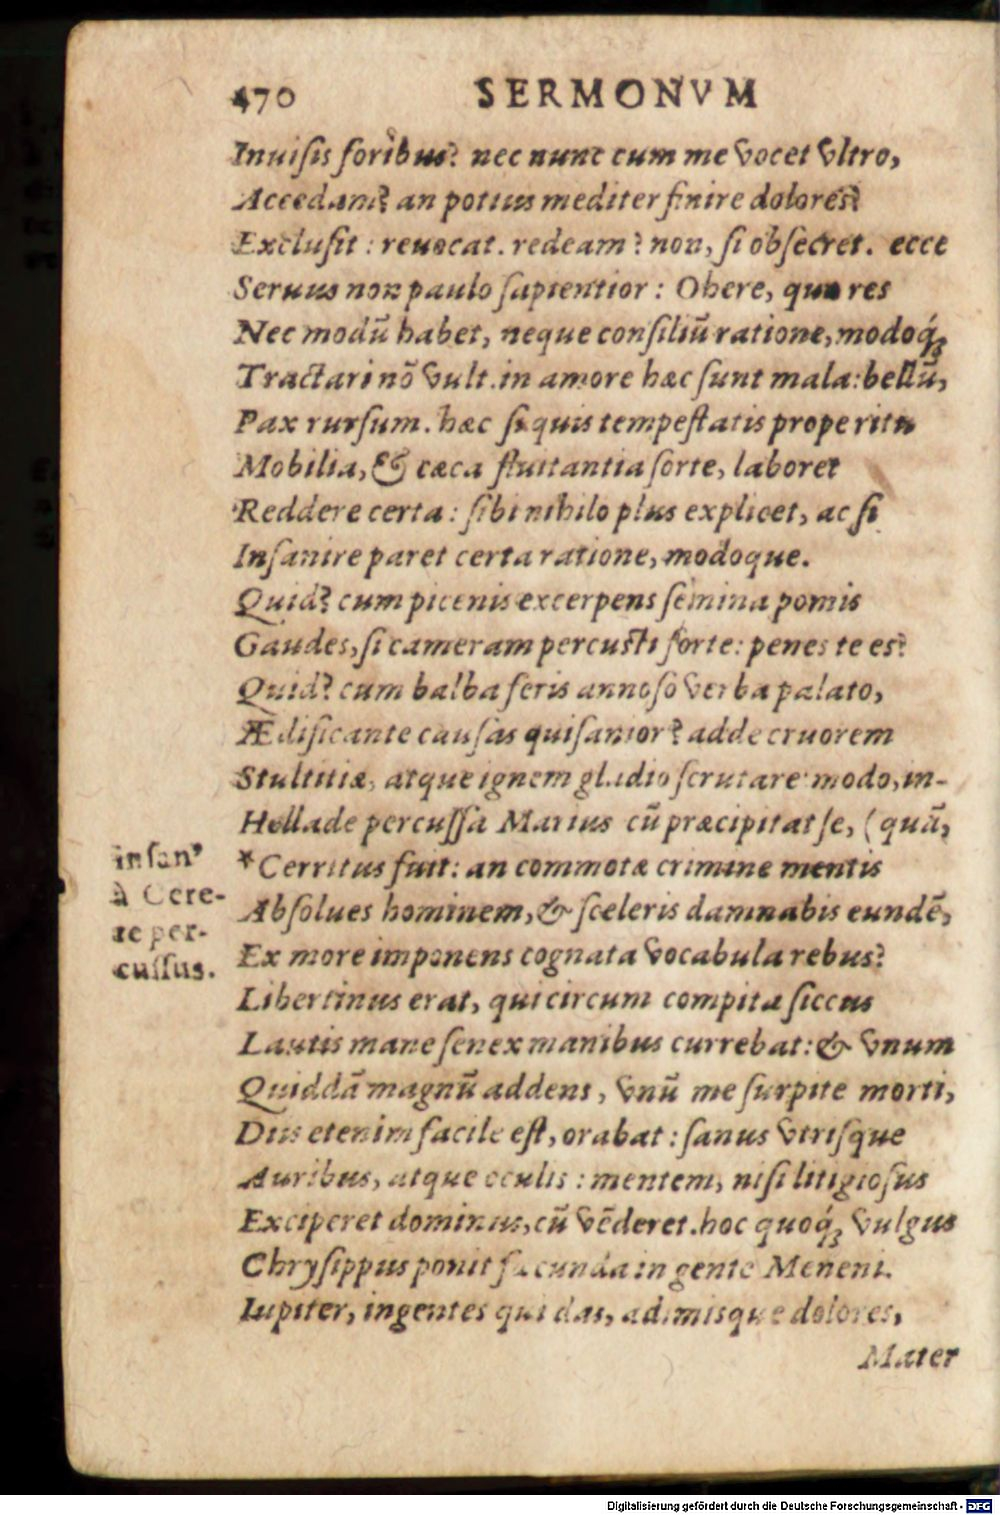 470 SERMONVM
Inuiſis foribus? nec nunc cum me vocet vltro,
Accedam? an potius mediter finire dolores?
Excluſit: reuocat. redeam? non, ſi obſecret. ecce
Seruus non paulo ſapientior: O here, quæ res
Nec modū habet, neque conſiliū ratione, modoq́ꝫ
Tractari nō vult. in amore hæc ſunt mala: bellū,
Pax rurſum. hæc ſi quis tempeſtatis prope ritu
Mobilia, & cæca fluitantia ſorte, laboret
Reddere certa: ſibi nihilo plus explicet, ac ſi
Inſanire paret certa ratione, modoque.
Quid? cum picenis excerpens ſemina pomis
Gaudes, ſi cameram percuſti forte: penes te es?
Quid? cum balba feris annoſo verba palato,
Ædificante caſas qui ſanior? adde cruorem
Stultitiæ, atque ignem gladio ſcrutare modo, in-
Hellade percuſſa Marius cū præcipitat ſe, (quā,
*Cerritus fuit: an commotæ crimine mentis
Abſolues hominem, & ſceleris damnabis eundē,
Ex more imponens cognata vocabula rebus?
Libertinus erat, qui circum compita ſiccus
Lautis mane ſenex manibus currebat: & vnum
Quiddā magnū addens, vnū me ſurpite morti,
Diis etenim facile eſt, orabat: ſanus vtriſque
Auribus, atque oculis: mentem, niſi litigioſus
Exciperet dominus, cū vēderet. hoc quoq́ꝫ vulgus
Chryſippus ponit fæcunda in gente Meneni.
Iupiter, ingentes qui das, adimisque dolores,
Mater
inſanꝰ
à Cere-
re per-
cuſſus.
Digitalisierung gefördert durch die Deutsche Forschungsgemeinschaft - DFG